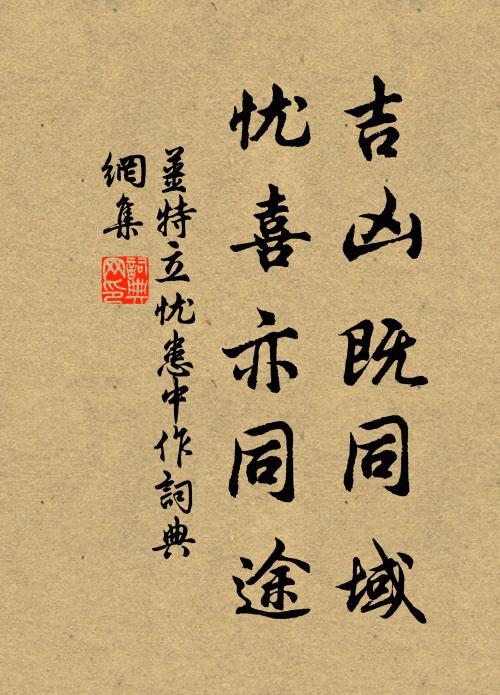 吉凶既同域
忧喜亦同途
姜特立忧患中作詞典
網集
詞典
网印